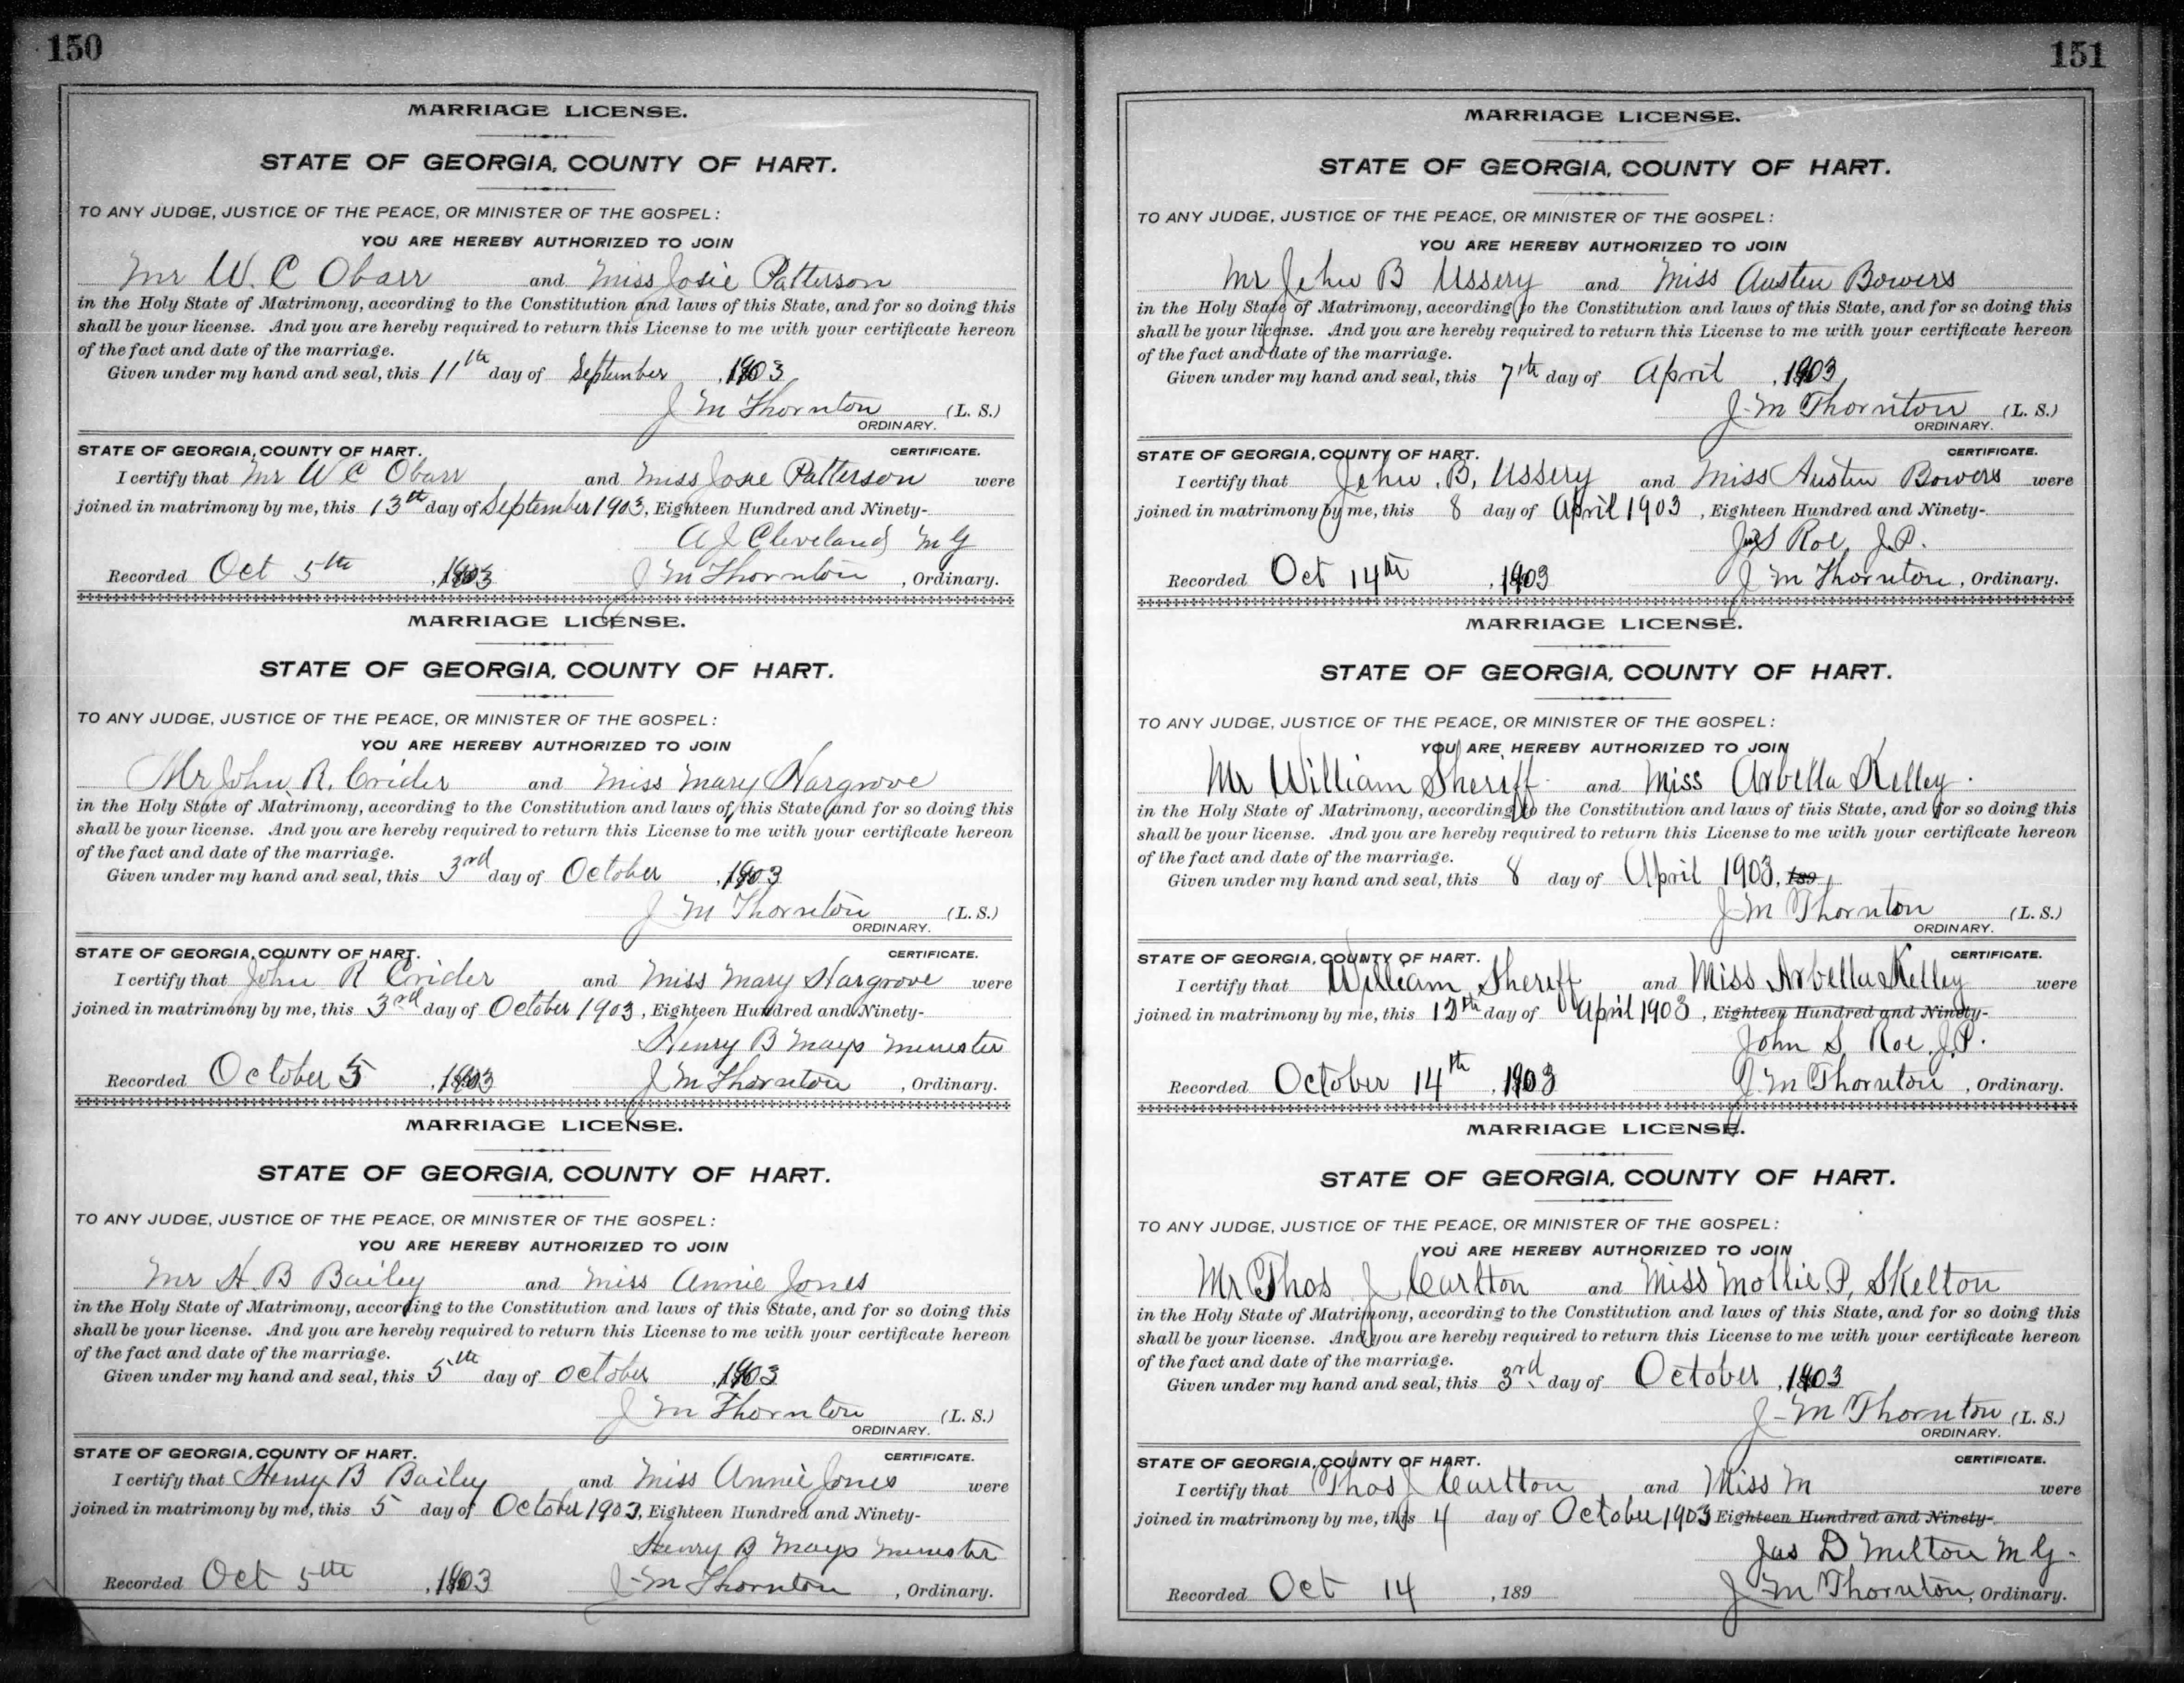 150
MARRIAGE LICENSE.
STATE OF GEORGIA, COUNTY OF HART.
TO ANY JUDGE, JUSTICE OF THE PEACE, OR MINISTER OF THE GOSPEL:
YOU ARE HEREBY AUTHORIZED TO JOIN
Mr W. C Obarr and Miss Josie Patterson
in the Holy State of Matrimony, according to the Constitution and laws of this State, and for so doing this
shall be your license. And you are hereby required to return this License to me with your certificate hereon
of the fact and date of the marriage.
Given under my hand and seal, this 11th day of September, 1903
J M Thornton (L. S.)
ORDINARY.
STATE OF GEORGIA, COUNTY OF HART. CERTIFICATE.
I certify that Mr W C Obarr and Miss Josie Patterson were
joined in matrimony by me, this 13th day of September 1903, Eighteen Hundred and Ninety-
A J Cleveland M G
Recorded Oct 5th, 1903 J M Thornton, Ordinary.
MARRIAGE LICENSE.
STATE OF GEORGIA, COUNTY OF HART.
TO ANY JUDGE, JUSTICE OF THE PEACE, OR MINISTER OF THE GOSPEL:
YOU ARE HEREBY AUTHORIZED TO JOIN
Mr John R. Crider and Miss Mary Hargrove
in the Holy State of Matrimony, according to the Constitution and laws of this State, and for so doing this
shall be your license. And you are hereby required to return this License to me with your certificate hereon
of the fact and date of the marriage.
Given under my hand and seal, this 3rd day of October, 1903
J M Thornton (L. S.)
ORDINARY.
STATE OF GEORGIA, COUNTY OF HART. CERTIFICATE.
I certify that John R Crider and Miss Mary Hargrove were
joined in matrimony by me, this 3rd day of October 1903, Eighteen Hundred and Ninety-
Henry B Mays Minister
Recorded October 5, 1903 J M Thornton, Ordinary.
MARRIAGE LICENSE.
STATE OF GEORGIA, COUNTY OF HART.
TO ANY JUDGE, JUSTICE OF THE PEACE, OR MINISTER OF THE GOSPEL:
YOU ARE HEREBY AUTHORIZED TO JOIN
Mr H. B Bailey and Miss Annie Jones
in the Holy State of Matrimony, according to the Constitution and laws of this State, and for so doing this
shall be your license. And you are hereby required to return this License to me with your certificate hereon
of the fact and date of the marriage.
Given under my hand and seal, this 5th day of October, 1903
J M Thornton (L. S.)
ORDINARY.
STATE OF GEORGIA, COUNTY OF HART. CERTIFICATE.
I certify that Henry B Bailey and Miss Annie Jones were
joined in matrimony by me, this 5 day of October 1903, Eighteen Hundred and Ninety-
Henry B Mays Minister
Recorded Oct 5th, 1903 J M Thornton, Ordinary.
151
MARRIAGE LICENSE.
STATE OF GEORGIA, COUNTY OF HART.
TO ANY JUDGE, JUSTICE OF THE PEACE, OR MINISTER OF THE GOSPEL:
YOU ARE HEREBY AUTHORIZED TO JOIN
Mr John B Ussery and Miss Austin Bowers
in the Holy State of Matrimony, according to the Constitution and laws of this State, and for so doing this
shall be your license. And you are hereby required to return this License to me with your certificate hereon
of the fact and date of the marriage.
Given under my hand and seal, this 7th day of April, 1903
J-M Thornton (L. S.)
ORDINARY.
STATE OF GEORGIA, COUNTY OF HART. CERTIFICATE.
I certify that John. B, Ussery and Miss Austin Bowers were
joined in matrimony by me, this 8 day of April 1903, Eighteen Hundred and Ninety-
S Roe, J.P.
Recorded Oct 14th, 1903 J M Thornton, Ordinary.
MARRIAGE LICENSE.
STATE OF GEORGIA, COUNTY OF HART.
TO ANY JUDGE, JUSTICE OF THE PEACE, OR MINISTER OF THE GOSPEL:
YOU ARE HEREBY AUTHORIZED TO JOIN
Mr William Sheriff and Miss Arbella Kelley.
in the Holy State of Matrimony, according to the Constitution and laws of this State, and for so doing this
shall be your license. And you are hereby required to return this License to me with your certificate hereon
of the fact and date of the marriage.
Given under my hand and seal, this 8 day of April 1903, 189
J-M Thornton (L. S.)
ORDINARY.
STATE OF GEORGIA, COUNTY OF HART. CERTIFICATE.
I certify that William Sheriff and Miss Arbella Kelley were
joined in matrimony by me, this 12th day of April 1903, Eighteen Hundred and Ninety-
John S Roe, J.P.
Recorded October 14th, 1903 J M Thornton, Ordinary.
MARRIAGE LICENSE.
STATE OF GEORGIA, COUNTY OF HART.
TO ANY JUDGE, JUSTICE OF THE PEACE, OR MINISTER OF THE GOSPEL:
YOU ARE HEREBY AUTHORIZED TO JOIN
Mr Thos J Carlton and Miss Mollie. P, Skelton
in the Holy State of Matrimony, according to the Constitution and laws of this State, and for so doing this
shall be your license. And you are hereby required to return this License to me with your certificate hereon
of the fact and date of the marriage.
Given under my hand and seal, this 3rd day of October, 1903
J-M Thornton (L. S.)
ORDINARY.
STATE OF GEORGIA, COUNTY OF HART. CERTIFICATE.
I certify that Thos J Carlton and Miss M were
joined in matrimony by me, this 4 day of October 1903 Eighteen Hundred and Ninety-
Jas D Milton M G.
Recorded Oct 14, 189 J M Thornton, Ordinary.